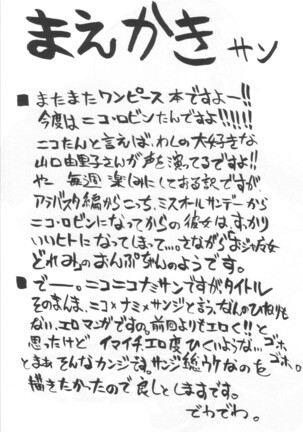 まえかき サン
■またまたワンピース本ですよー!!
今度はニコ・ロビンたんですよ!!!!!!
ニコたんと言えば、わしの大好きな
山口由里子さんが声を演ってるですよ!!
やー 毎週楽しみにしておる訳ですが
アラバスタ編からこっち、ミスオールサンデーから
ニコ・ロビンになってからの彼女は、すっかり
いいヒトになってしまって…。さながら「おジャ魔女
どれみ」のおんぷちゃんのようです。
■でー。ニコニコナミサンですがタイトル
そのまんま、ニコ×ナミ×サンジと言う、なんのひねりも
ない、エロマンガです。前回よりもエロく!!と
思ったけど イマイチエロ度ひくいような…ゴホ、ゴホ。
とまぁそんなカンジです。サンジ総ウケなのを
描きたかったので良しとしますです。
でわでわ。